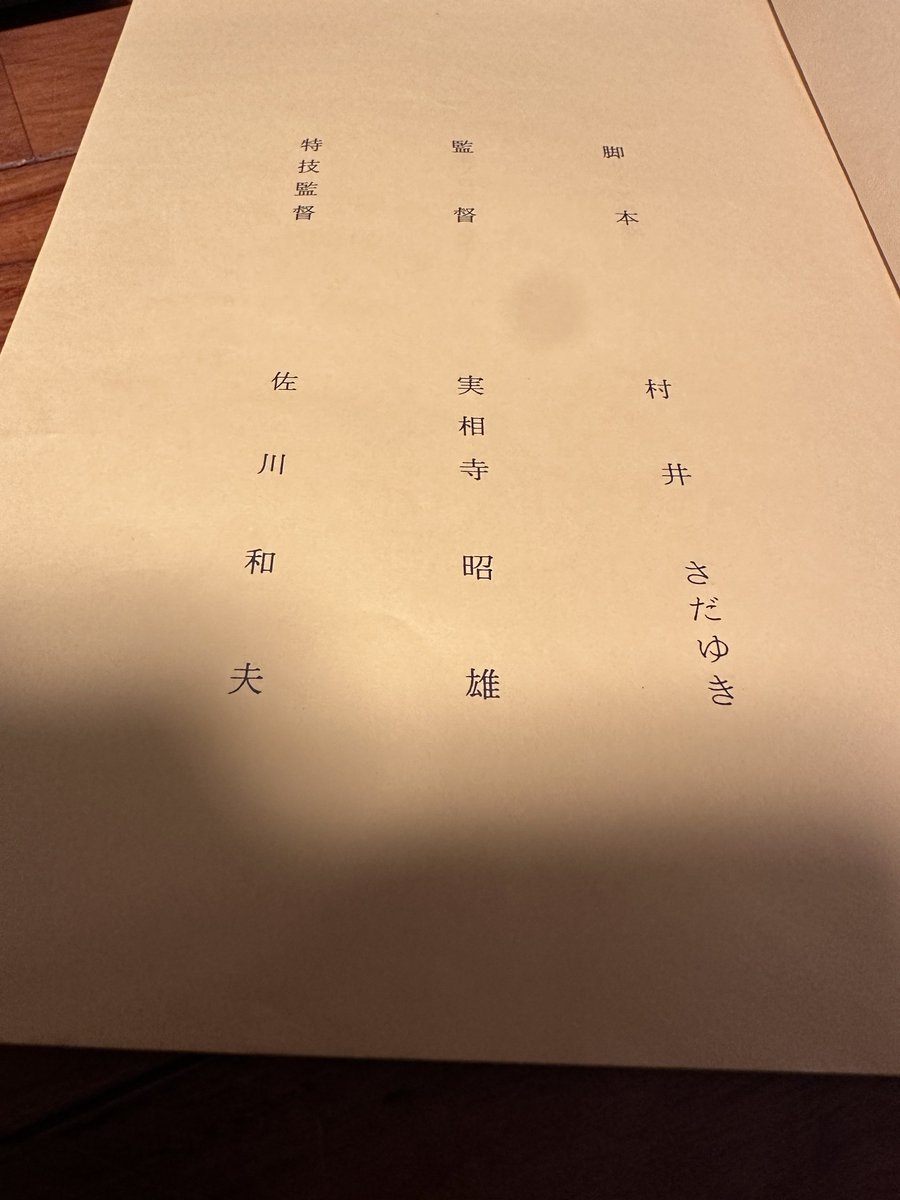 脚本 村井さだゆき
監督 実相寺昭雄
特技監督 佐川和夫